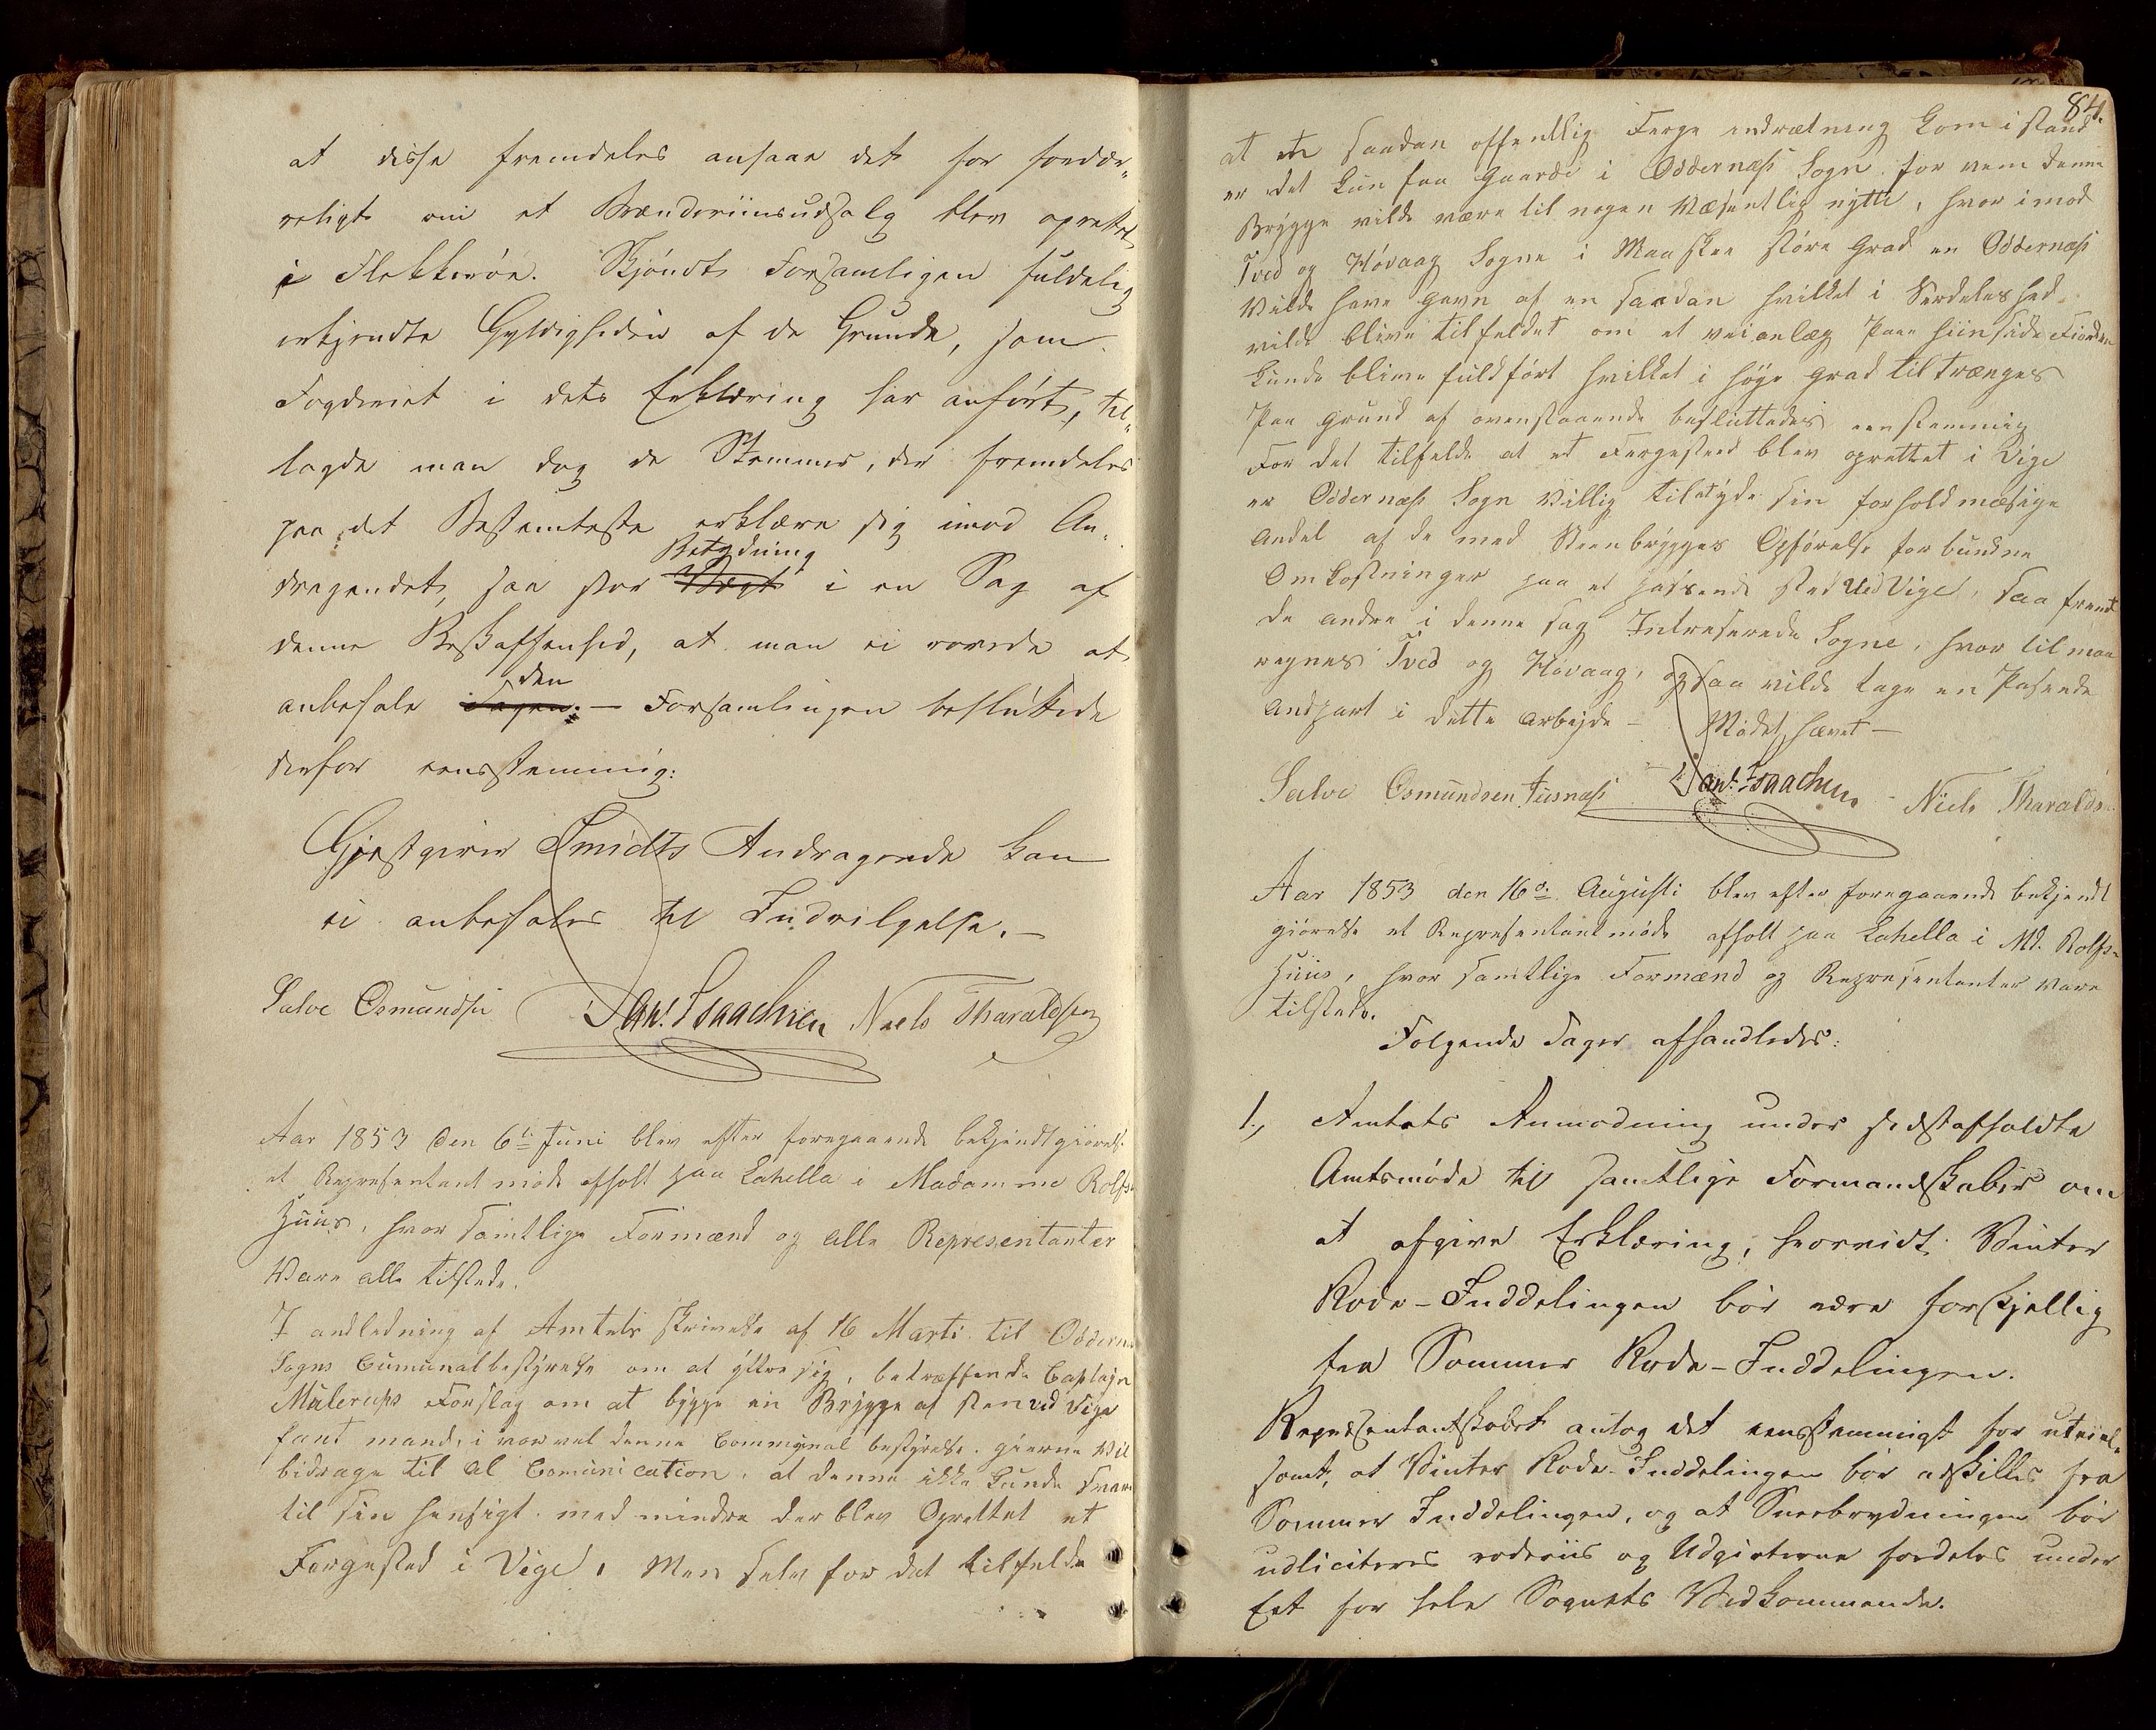 at disse fremdeles ansaae det for fordær-
veligt om et Brændeviinsudsalg blev oprettet
i Flekkerøe. Skjøndt Forsamligen fuldelig
erkjendte Gyldigheden af de Grunde, som
Fogderiet i dets Erklæring har anført, til-
lagde man dog de Stemmer, der fremdeles
paa det Bestemteste erklære sig imod An-
dragendet, saa stor Vægt Betydning i en Sag af
denne Beskaffenhed, at man ei vovede at
anbefale Sagen den. — Forsamlingen besluttede
derfor eensstemmig:
Gjestgiver Smidts Andragende kan
ei anbefales til Indvilgelse. —
Salve Osmundsen Dan. Isaachsen Niels Tharaldsen
Aar 1853 den 6te Juni blev efter foregaaende bekjendtgiørelse
et Representantmøde afholt paa Lahella i Madamme Rolfs
Huus, hvor samtlige Formænd og alle Representanter
Vare alle tilstede.
I andledning af Amtets skrivelse af 16 Marti til Oddernes
Sogns Cumunalbestyrelse om at yttre sig, betræffende Captajn
Mülerups Forslag om at bygge en Brygge af sten ved Vige
fant mand, i vorvel denne Communal bestyrelse gierne vil
bidrage til al Comunication, at denne ikke kunde svare
til sin hensigt med mindre der blev Oprettet et
Fergested i Vige, Men selv for det tilfelde
84.
at en saadan offentlig Ferge indrætning kom i stand
er det kun faa Gaarde i Oddernæss Sogn for vem denne
Brygge vilde være til nogen Væsentlig nytte, hvor imod
Tved og Høvaag Sogne i Maaskee støre Grad en Oddernæs
Vilde have gavn af en saadan hvilket i Serdeleshed
vilde blive tilfeldet om et vei anlæg paa hiin side Fiorden
kunde blive fuldført hvilket i høye grad til trænges
Paa grund af ovenstaaende besluttedes eenstemmig
For det tilfelde at et Fergested blev oprettet i Vige
er Oddernæss Sogn Villig til at yde sin forholdmæsige
Andel af de med Steenbrygges Opførelse forbundne
Omkostninger paa et passende sted ved Vige, saa fremt
de andre i denne sag Intreserede Sogne, hvor til man
regner Tved og Høvaag, ogsaa vilde tage en Pasende
Andpart i dette arbejde — Mødet hævet —
Salve Osmundsen Dan. Isaachsen Niels Tharalds
Aar 1853 den 16de Augusti blev efter foregaaende bekjendt
giørelse et Representantmøde afholt paa Lahella i Md. Rolfs-
Huus, hvor samtlige Formænd og Representanter vare
tilstede.
Følgende Sager afhandledes:
1., Amtets Anmodning under sidstafholdte
Amtsmøde til samtlige Formandskaber om
at afgive Erklæring, hvorvidt Vinter
Rode-Inddelingen bør være forskjellig
fra Sommer Rode-Inddelingen.
Repræsentantskabet antog det eensstemmigt for
at Vinter Rode-Inddelingen bør adskilles fra
Sommer Inddelingen, og at Sneebrydningen bør
udliciteres rodeviis og Udgivterne fordeles under
Eet for hele Sognets Vedkommende.